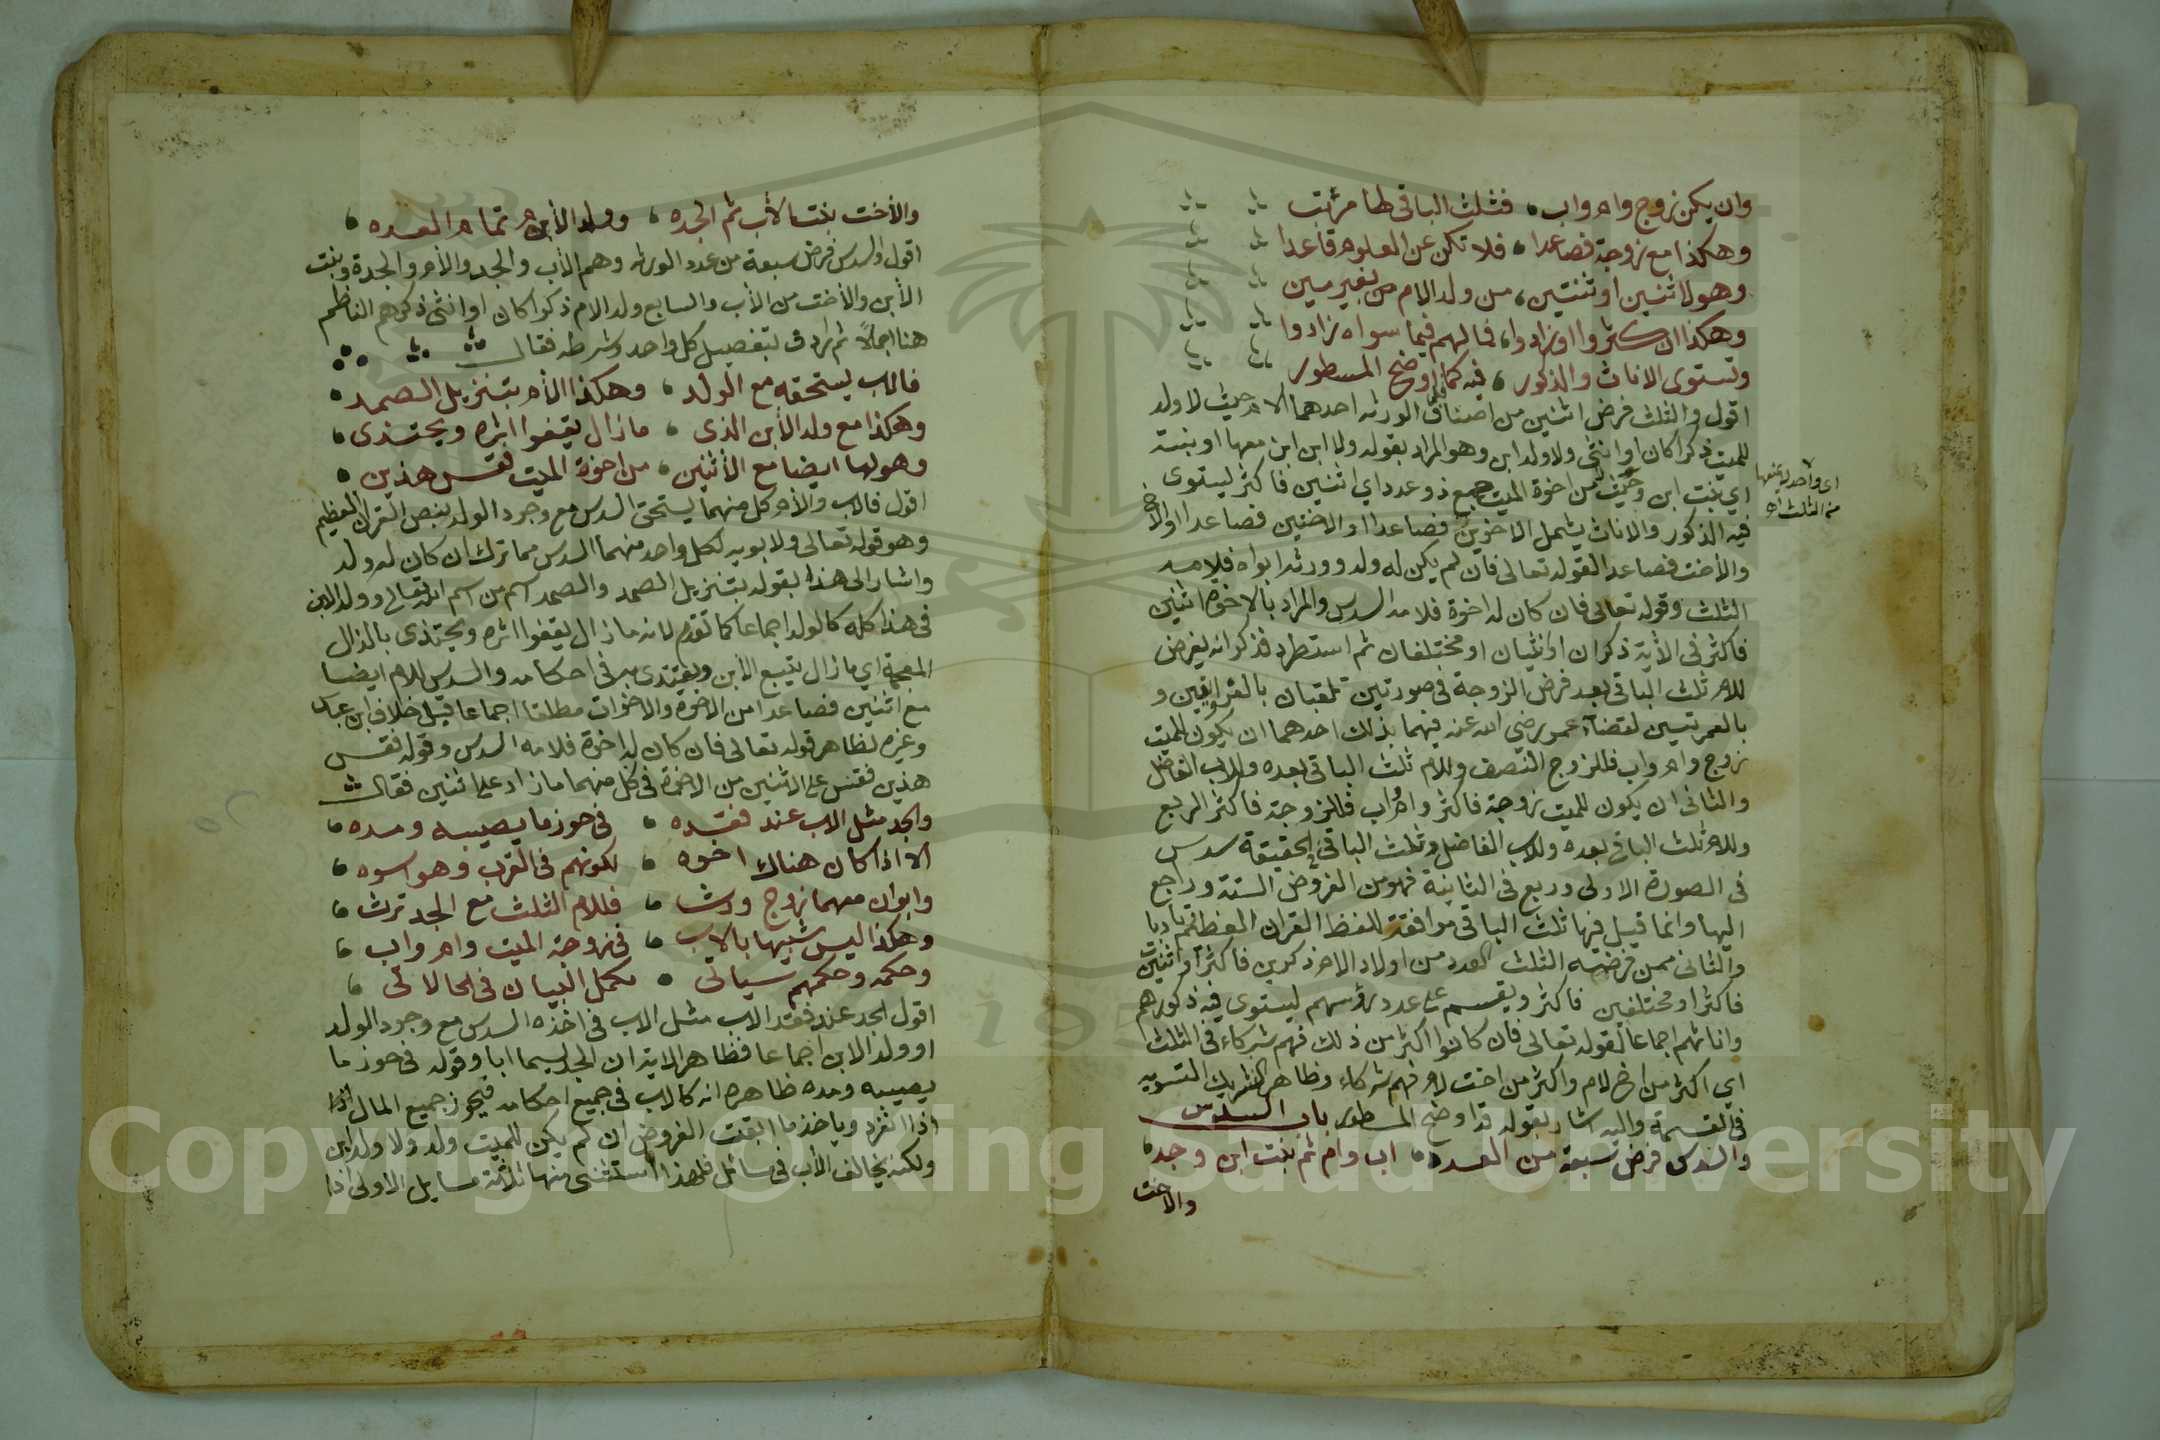 وان يكن زوج وام واب فثلث الباقي لها مرتب
وهكذا مع زوجة فصاعدا فلا تكن عن العلوم قاعدا
وهو لاثنين او ثنتين من ولد الام من بغير مين
وهكذا ان كثروا او زادوا فما لهم فيما سواه زادوا
وتستوي الاناث والذكور فيه كما قد اوضح المسطور
اقول والثلث فرض اثنين من اصناف الورثه احدهما الام حيث لا ولد
للميت ذكرا كان او انثى ولا ولد ابن وهو المراد بقوله ولا ابن ابن معها او بنته
اي بنت ابن وحيث لا من اخوة الميت جمع ذو عدد اي اثنين فاكثر يستوي
اي واحد يمنعها
من الثلث اه
فيه الذكور والاناث يشمل الاخوين فصاعدا او الاختين فصاعدا او الاخ
والأخت فصاعدا لقوله تعالى فان لم يكن له ولد وورثه ابواه فلامه
الثلث وقوله تعالى فان كان له اخوة فلامه السدس والمراد بالاخوة اثنين
فاكثر في الأية ذكران او انثيان او مختلفان ثم استطرد فذكر انه يفرض
للام ثلث الباقي بعد فرض الزوجة في صورتين تلقبان بالغراويين و
بالعمرتيين لقضآء عمر رضي الله عنه فيهما بذلك احدهما ان يكون للميت
زوج وام واب فللزوج النصف وللام ثلث الباقي بعده وللاب الفاضل
والثاني ان يكون للميت زوجة فاكثر وام واب فللزوجة فاكثر الربع
وللام ثلث الباقي بعده وللاب الفاضل وثلث الباقي في الحقيقة سدس
في الصورة الاولى وربع في الثانية فهو من الفروض الستة وراجع
اليها وانما قيل فيها ثلث الباقي موافقة للفظ القران العظيم تادبا
والثاني ممن فرضه الثلث العدد من اولاد الام ذكرين فاكثر او اثنتين
فاكثر او مختلفين فاكثر ويقسم على عدد رؤسهم يستوي فيه ذكورهم
واناثهم اجماعا لقوله تعالى فان كانوا اكثر من ذلك فهم شركاء في الثلث
اي اكثر من اخ لام واكثر من اخت لام فهم شركاء وظاهر التشريك التسويه
في القسمة واليه اشار بقوله قد اوضح المسطور باب السدس
والسدس فرض سبعة من العدد اب وام ثم بنت ابن وجد
والاخت
والأخت بنت الأب ثم الجده وولد الأم تمام العده
اقول والسدس فرض سبعة من عدد الورثه وهم الأب والجد والأم والجدة وبنت
الأبن والأخت من الأب والسابع ولد الام ذكرا كان او انثى ذكرهم الناظم
هنا اجمالاً ثم اردف بتفصيل كل واحد وشرطه فقال
فالاب يستحقه مع الولد وهكذا الأم بتنزيل الصمد
وهكذا مع ولد الأبن الذي ما زال يقفوا اثره ويحتذي
وهو لها ايضا مع الأثنين من اخوة الميت فقس هذين
اقول فالاب والأم كل منهما يستحق السدس مع وجود الولد بنص القران العظيم
وهو قوله تعالى ولابويه لكل واحد منهما السدس مما ترك ان كان له ولد
واشار الى هذا بقوله بتنزيل الصمد والصمد اسم من اسم الله تعالى وولد الابن
في هذا كله كالولد اجماعا كما تقدم لانه ما زال يقفوا اثره ويحتذي بالذال
المعجمة اي ما زال يتبع الأبن ويقتدى به في احكامه والسدس للام ايضا
مع اثنين فصاعدا من الاخوة والاخوات مطلقا اجماعا قيل خلافا ابن عباس
وغيره لظاهر قوله تعالى فان كان له اخوة فلامه السدس وقوله فقس
هذين فقس على الاثنين من الاخوة في كل منهما ما زاد على اثنين فقال
والجد مثل الاب عند فقده في حوز ما يصيبه ومده
الا اذا كان هناك اخوه لكونهم في القرب وهو اسوه
وابوان معهما زوج ورث فللام الثلث مع الجد ترث
وهكذا ليس شبيها بالاب في زوجة الميت وام واب
وحكمه وحكمهم سياتي مكمل البيان في الحالات
اقول الجد عند فقد الاب مثل الاب في اخذه السدس مع وجود الولد
او ولد الابن اجماعا فظاهر الاية ان الجد يسما ابا وقوله في حوز ما
يصيبه ومده ظاهره انه كالاب في جميع احكامه فيحوز جميع المال اذا
اذا انفرد وياخذ ما ابقت الفروض ان لم يكن للميت ولد ولا ولد ابن
ولكنه يخالف الأب في مسائل فلهذا استثنى منها ثلاثة مسايل الاولى اذا
Copyright © King Saud University